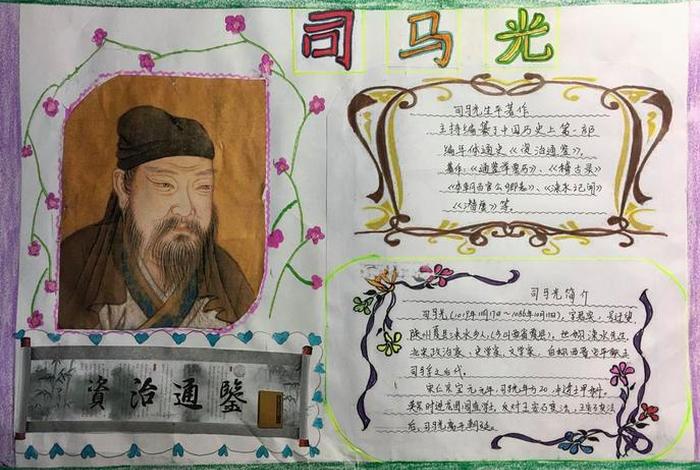 司马光
司马光生平著作
主持编纂了中国历史上第一部
编年体通史《资治通鉴》,
著作:《通鉴举要历》、《稽古录》
《本朝百官公卿表》、《涑水记闻》
《潜虚》等。
資治通鑒
司马光简介
司马光(1019年11月17日~1086年10月11日),字君实,号迂叟,
陕州夏县涑水乡人,(今山西省夏县),世称涑水先生,
北宋政治家、史学家、文学家,自称西晋安平献王
司马孚之后代。
宋仁宗宝元元年,司马光年方20,中进士甲科。
英宗时进龙图阁直学士,反对王安石变法,王安石变法
后,司马光离开朝廷。